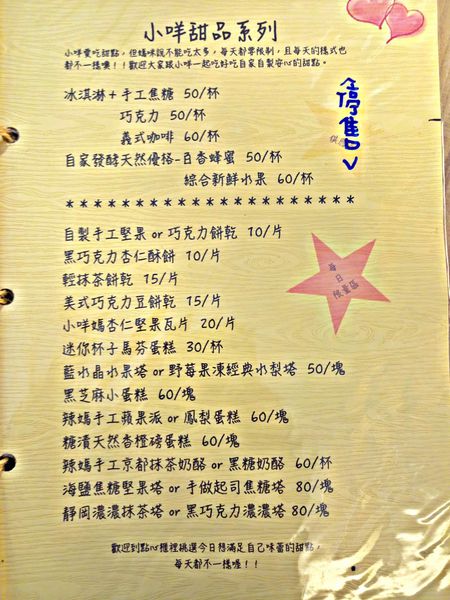 小咩甜品系列
小咩愛吃甜點，但媽咪說不能吃太多，每天都要限制，且每天的樣式也
都不一樣噢！！歡迎大家跟小咩一起吃好吃自家自製安心的甜點。
冰淇淋+手工焦糖 50/杯
巧克力 50/杯
義式咖啡 60/杯
自家發酵天然優格-百香蜂蜜 50/杯
綜合新鮮水果 60/杯
<停售>
********************
自製手工堅果 or 巧克力餅乾 10/片
黑巧克力杏仁酥餅 10/片
輕抹茶餅乾 15/片
美式巧克力豆餅乾 15/片
小咩媽杏仁堅果瓦片 20/片
迷你杯子馬芬蛋糕 30/杯
每日
限量區
藍水晶水果塔 or 野莓果凍經典水梨塔 50/塊
黑芝麻小蛋糕 60/塊
辣媽手工蘋果派 or 鳳梨蛋糕 60/塊
糖漬天然香橙磅蛋糕 60/塊
辣媽手工京都抹茶奶酪 or 黑糖奶酪 60/杯
海鹽焦糖堅果塔 or 手做起司焦糖塔 80/塊
靜岡濃濃抹茶塔 or 黑巧克力濃濃塔 80/塊
歡迎到點心櫃裡挑選今日想滿足自己味蕾的甜點，
每天都不一樣喔！！